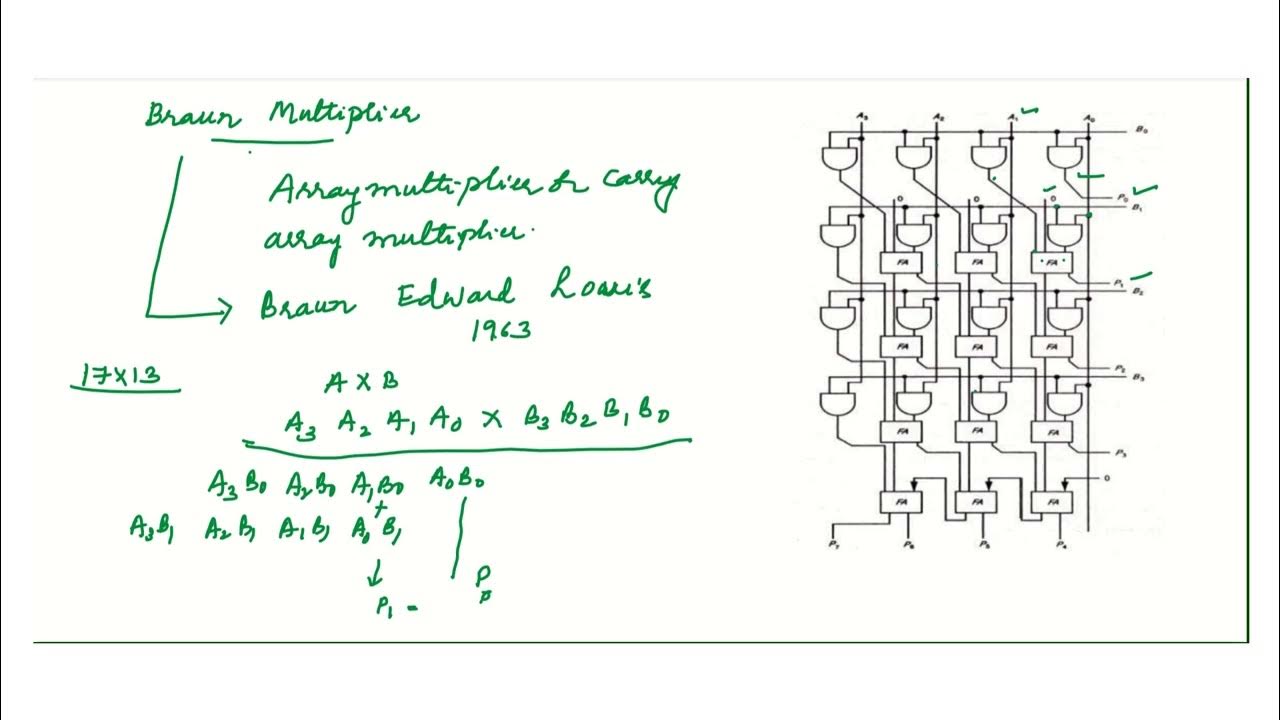 Braun Multiplier
Array multiplier or carry
array multiplier.
Braun Edward Louis
1963
17x13
A X B
A3 A2 A1 A0 X B3 B2 B1 B0
A3 B0 A2 B0 A1 B0 A0 B0
+
A3 B1 A2 B1 A1 B1 A0 B1
P1 =
A3 A2 A1 A0
B0
P0
0 0 0
B1
FA FA FA
P1
B2
FA FA FA
P2
B3
FA FA FA
P3
0
FA FA FA
P7 P6 P5 P4